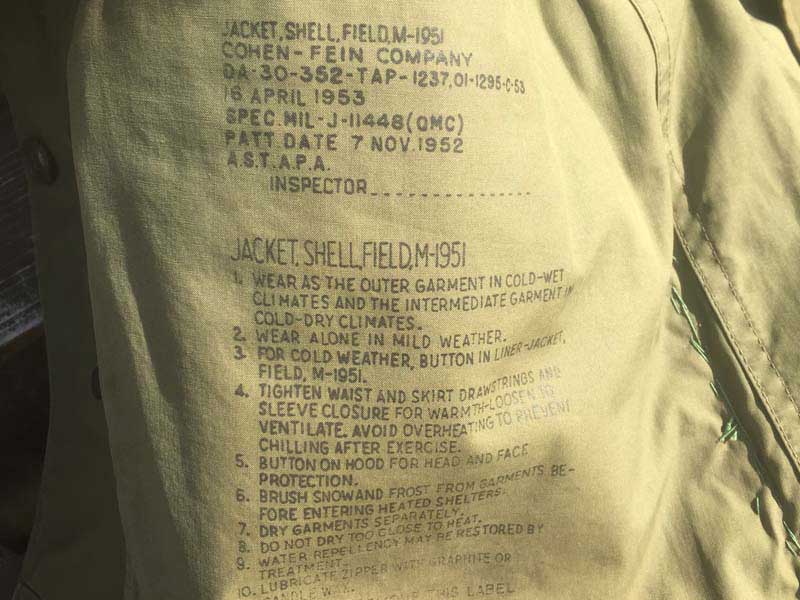 JACKET, SHELL, FIELD, M-1951
COHEN-FEIN COMPANY
DA-30-352-TAP-1237,01-1295-C-53
16 APRIL 1953
SPEC.MIL-J-11448(QMC)
PATT DATE 7 NOV.1952
A.S.T.A.P.A.
INSPECTOR________________
JACKET, SHELL, FIELD, M-1951
1. WEAR AS THE OUTER GARMENT IN COLD-WET
CLIMATES AND THE INTERMEDIATE GARMENT IN
COLD-DRY CLIMATES.
2. WEAR ALONE IN MILD WEATHER.
3. FOR COLD WEATHER, BUTTON IN LINER-JACKET,
FIELD, M-1951.
4. TIGHTEN WAIST AND SKIRT DRAWSTRINGS AND
SLEEVE CLOSURE FOR WARMTH-LOOSEN TO
VENTILATE. AVOID OVERHEATING TO PREVENT
CHILLING AFTER EXERCISE.
5. BUTTON ON HOOD FOR HEAD AND FACE
PROTECTION.
6. BRUSH SNOW AND FROST FROM GARMENTS BE-
FORE ENTERING HEATED SHELTERS.
7. DRY GARMENTS SEPARATELY.
8. DO NOT DRY TOO CLOSE TO HEAT.
9. WATER REPELLENCY MAY BE RESTORED BY
TREATMENT.
10. LUBRICATE ZIPPER WITH GRAPHITE OR
CANDLE WAX.
THIS LABEL